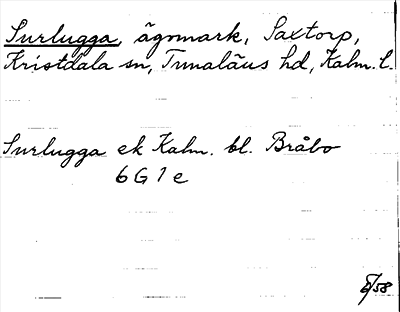 Surlugga, ägomark, Saxtorp,
Kristdala sn, Tunaläns hd, Kalm. l.
Surlugga ek Kalm. bl. Bråbo
6 G 1 e
6/58